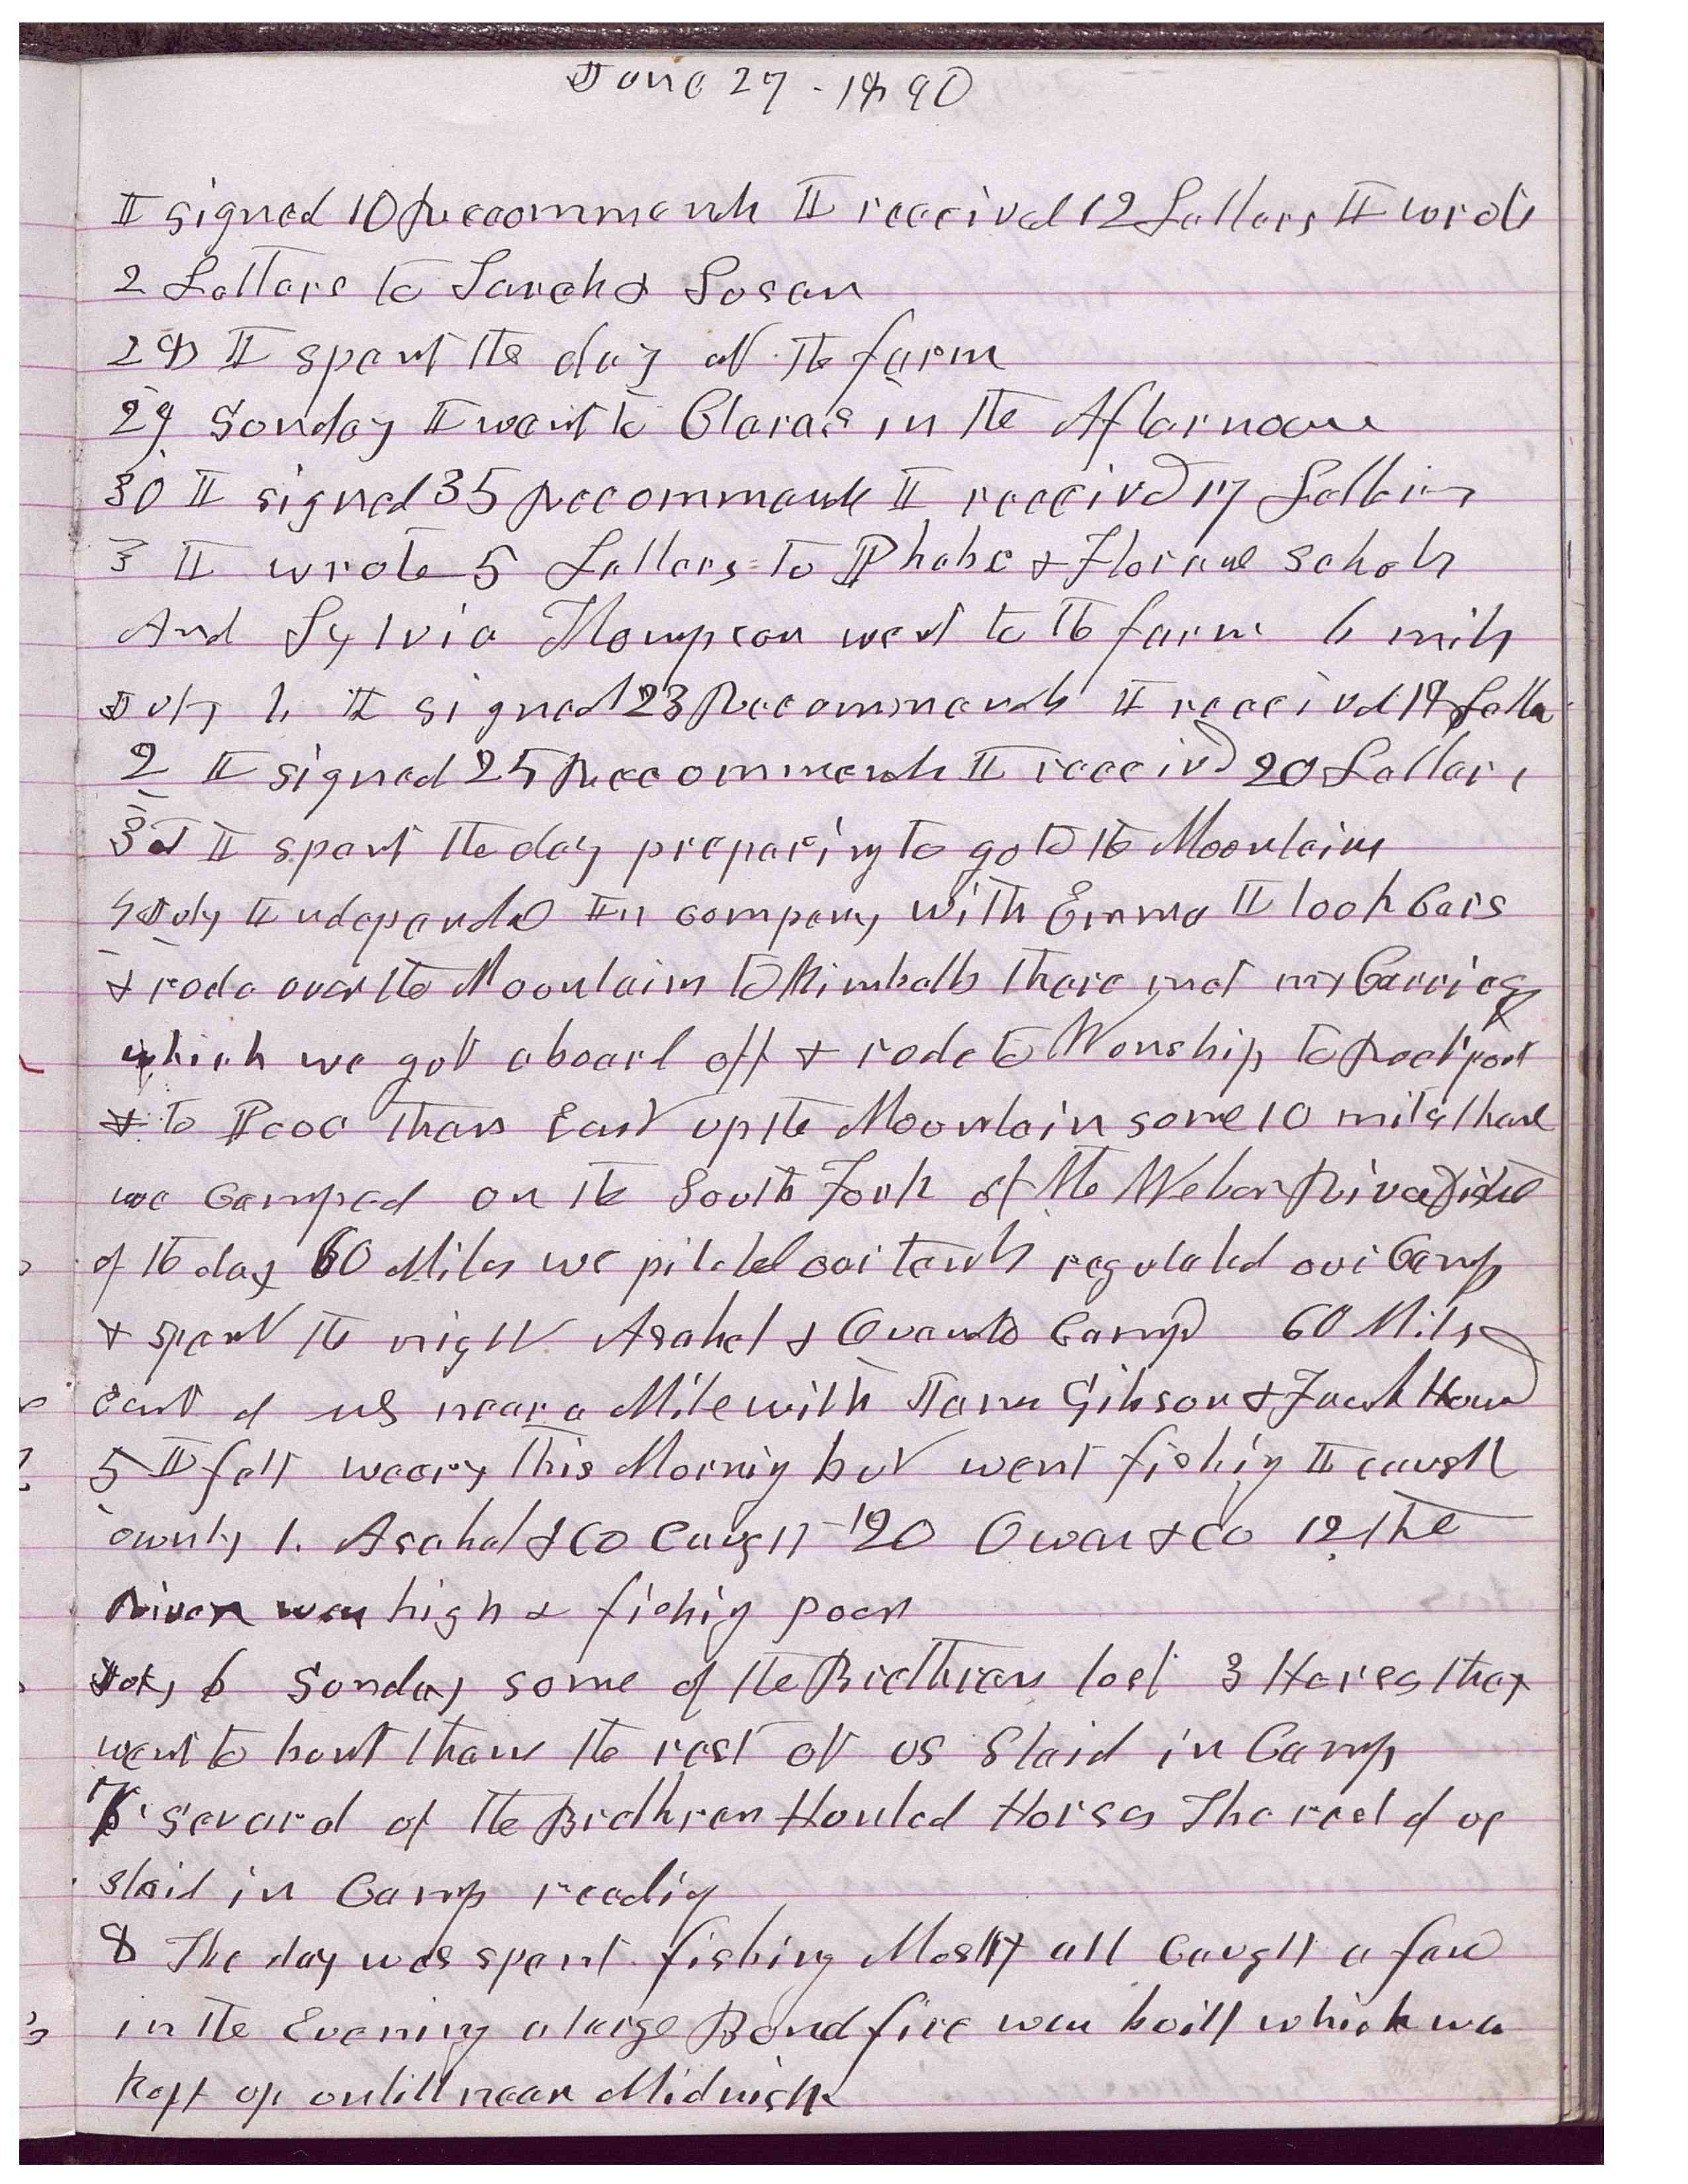 June 27. 1890
I signed 10 Recommends I received 12 Letters I wrote
2 Letters to Sarah & Susan
28 I spent the day at the farm
29 Sunday I went to Claras in the Afternoon
30 I signed 35 Recommends I received 17 Letters
3 I wrote 5 Letters to Phebe & Florence Scholes
And Sylvia Thompson went to the farm 6 miles
July 1. I signed 23 Recommends I received 18 Letters
2 I signed 25 Recommends I received 20 Letters
3d I spent the day preparing to go to the Mountains
4 July Independce In company with Emma I took Cars
& rode over the Mountains to Kimballs there met my Carriag
which we got aboard off & rode to Wanship to Rockport
& to Peoe then East up the Mountain some 10 miles there
we Camped on the South Fork of the Weber River
of the day 60 Miles we pitched our tents regulated our Camp
& spent the night Asahel & Owen to Camp 60 Miles
East of us near a Mile with Gibson &
5 I felt weary this Morning but went fishing I caught
ownly 1. Asahel & Co Caught 20 Owen & Co 12 the
River was high & fishing poor
July 6 Sunday some of the Brethren lost 3 Horses they
went to hunt them the rest of us Staid in Camp
7 Several of the Brethren Hunted Horses The rest of us
staid in Camp reading
8 The day was spent fishing Mostly all Caught a few
in the Evening a large Bond fire was built which was
kept up untill near Midnight